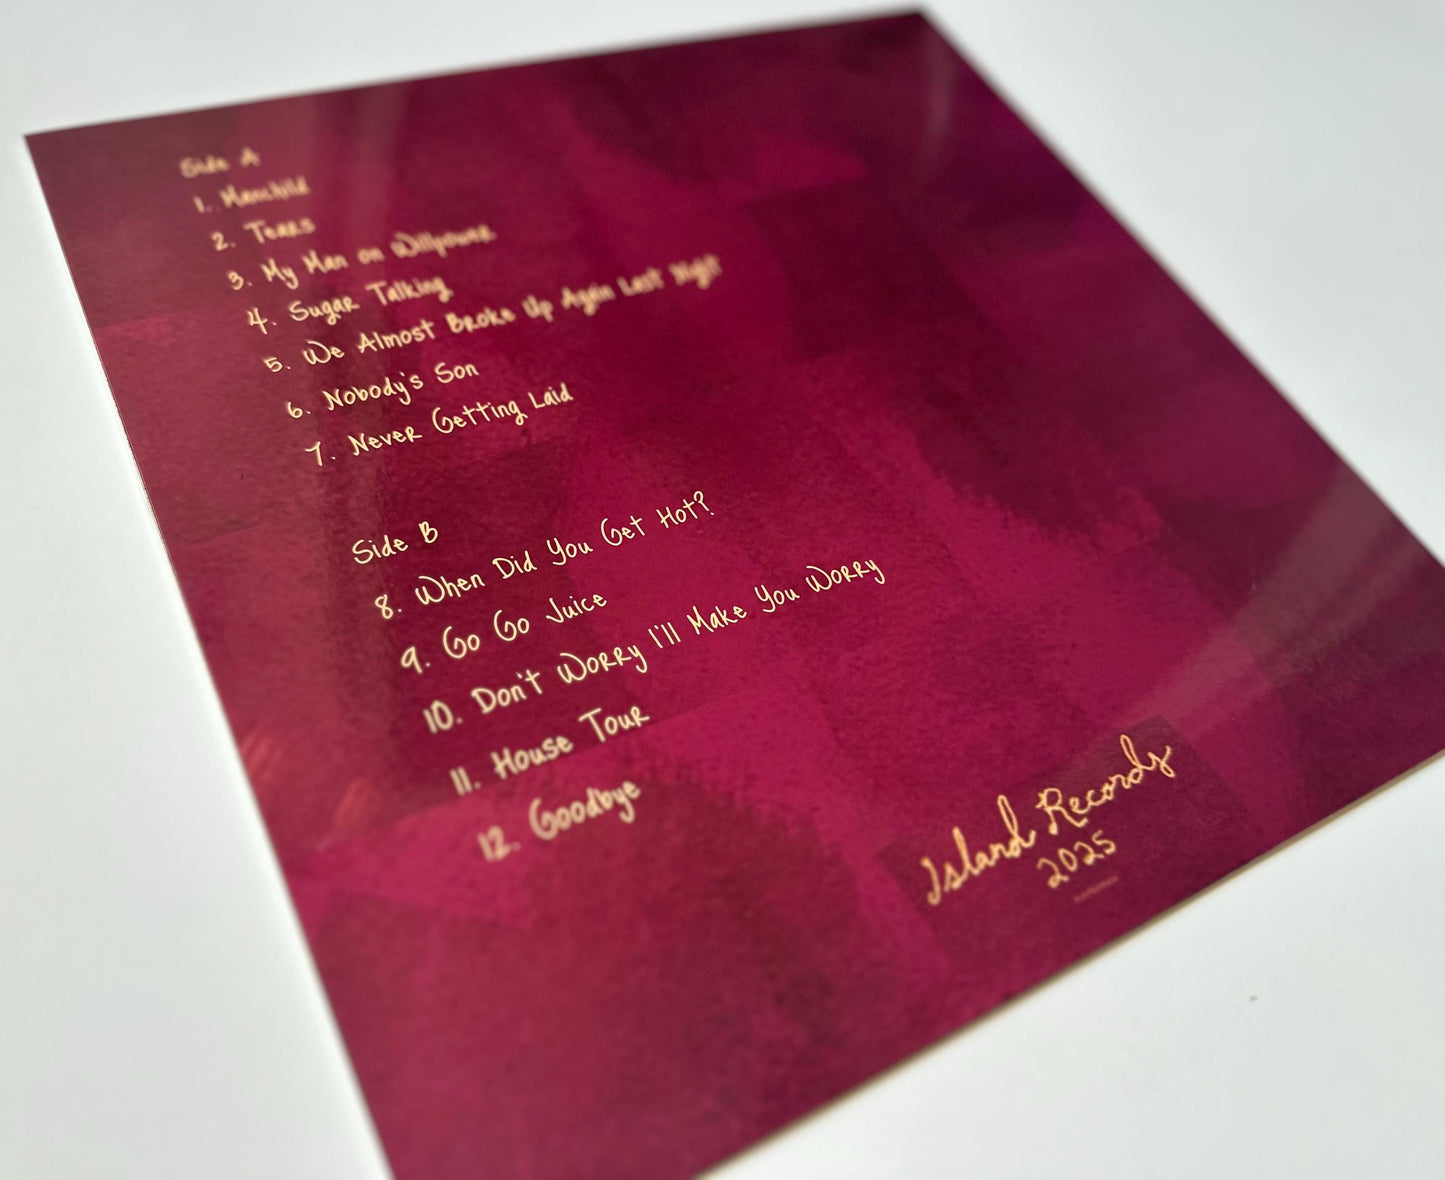 Side A
1. Manchild
2. Tears
3. My Man on Willpower
4. Sugar Talking
5. We Almost Broke Up Again Last Night
6. Nobody's Son
7. Never Getting Laid
Side B
8. When Did You Get Hot?
9. Go Go Juice
10. Don't Worry I'll Make You Worry
11. House Tour
12. Goodbye
Island Records
2025